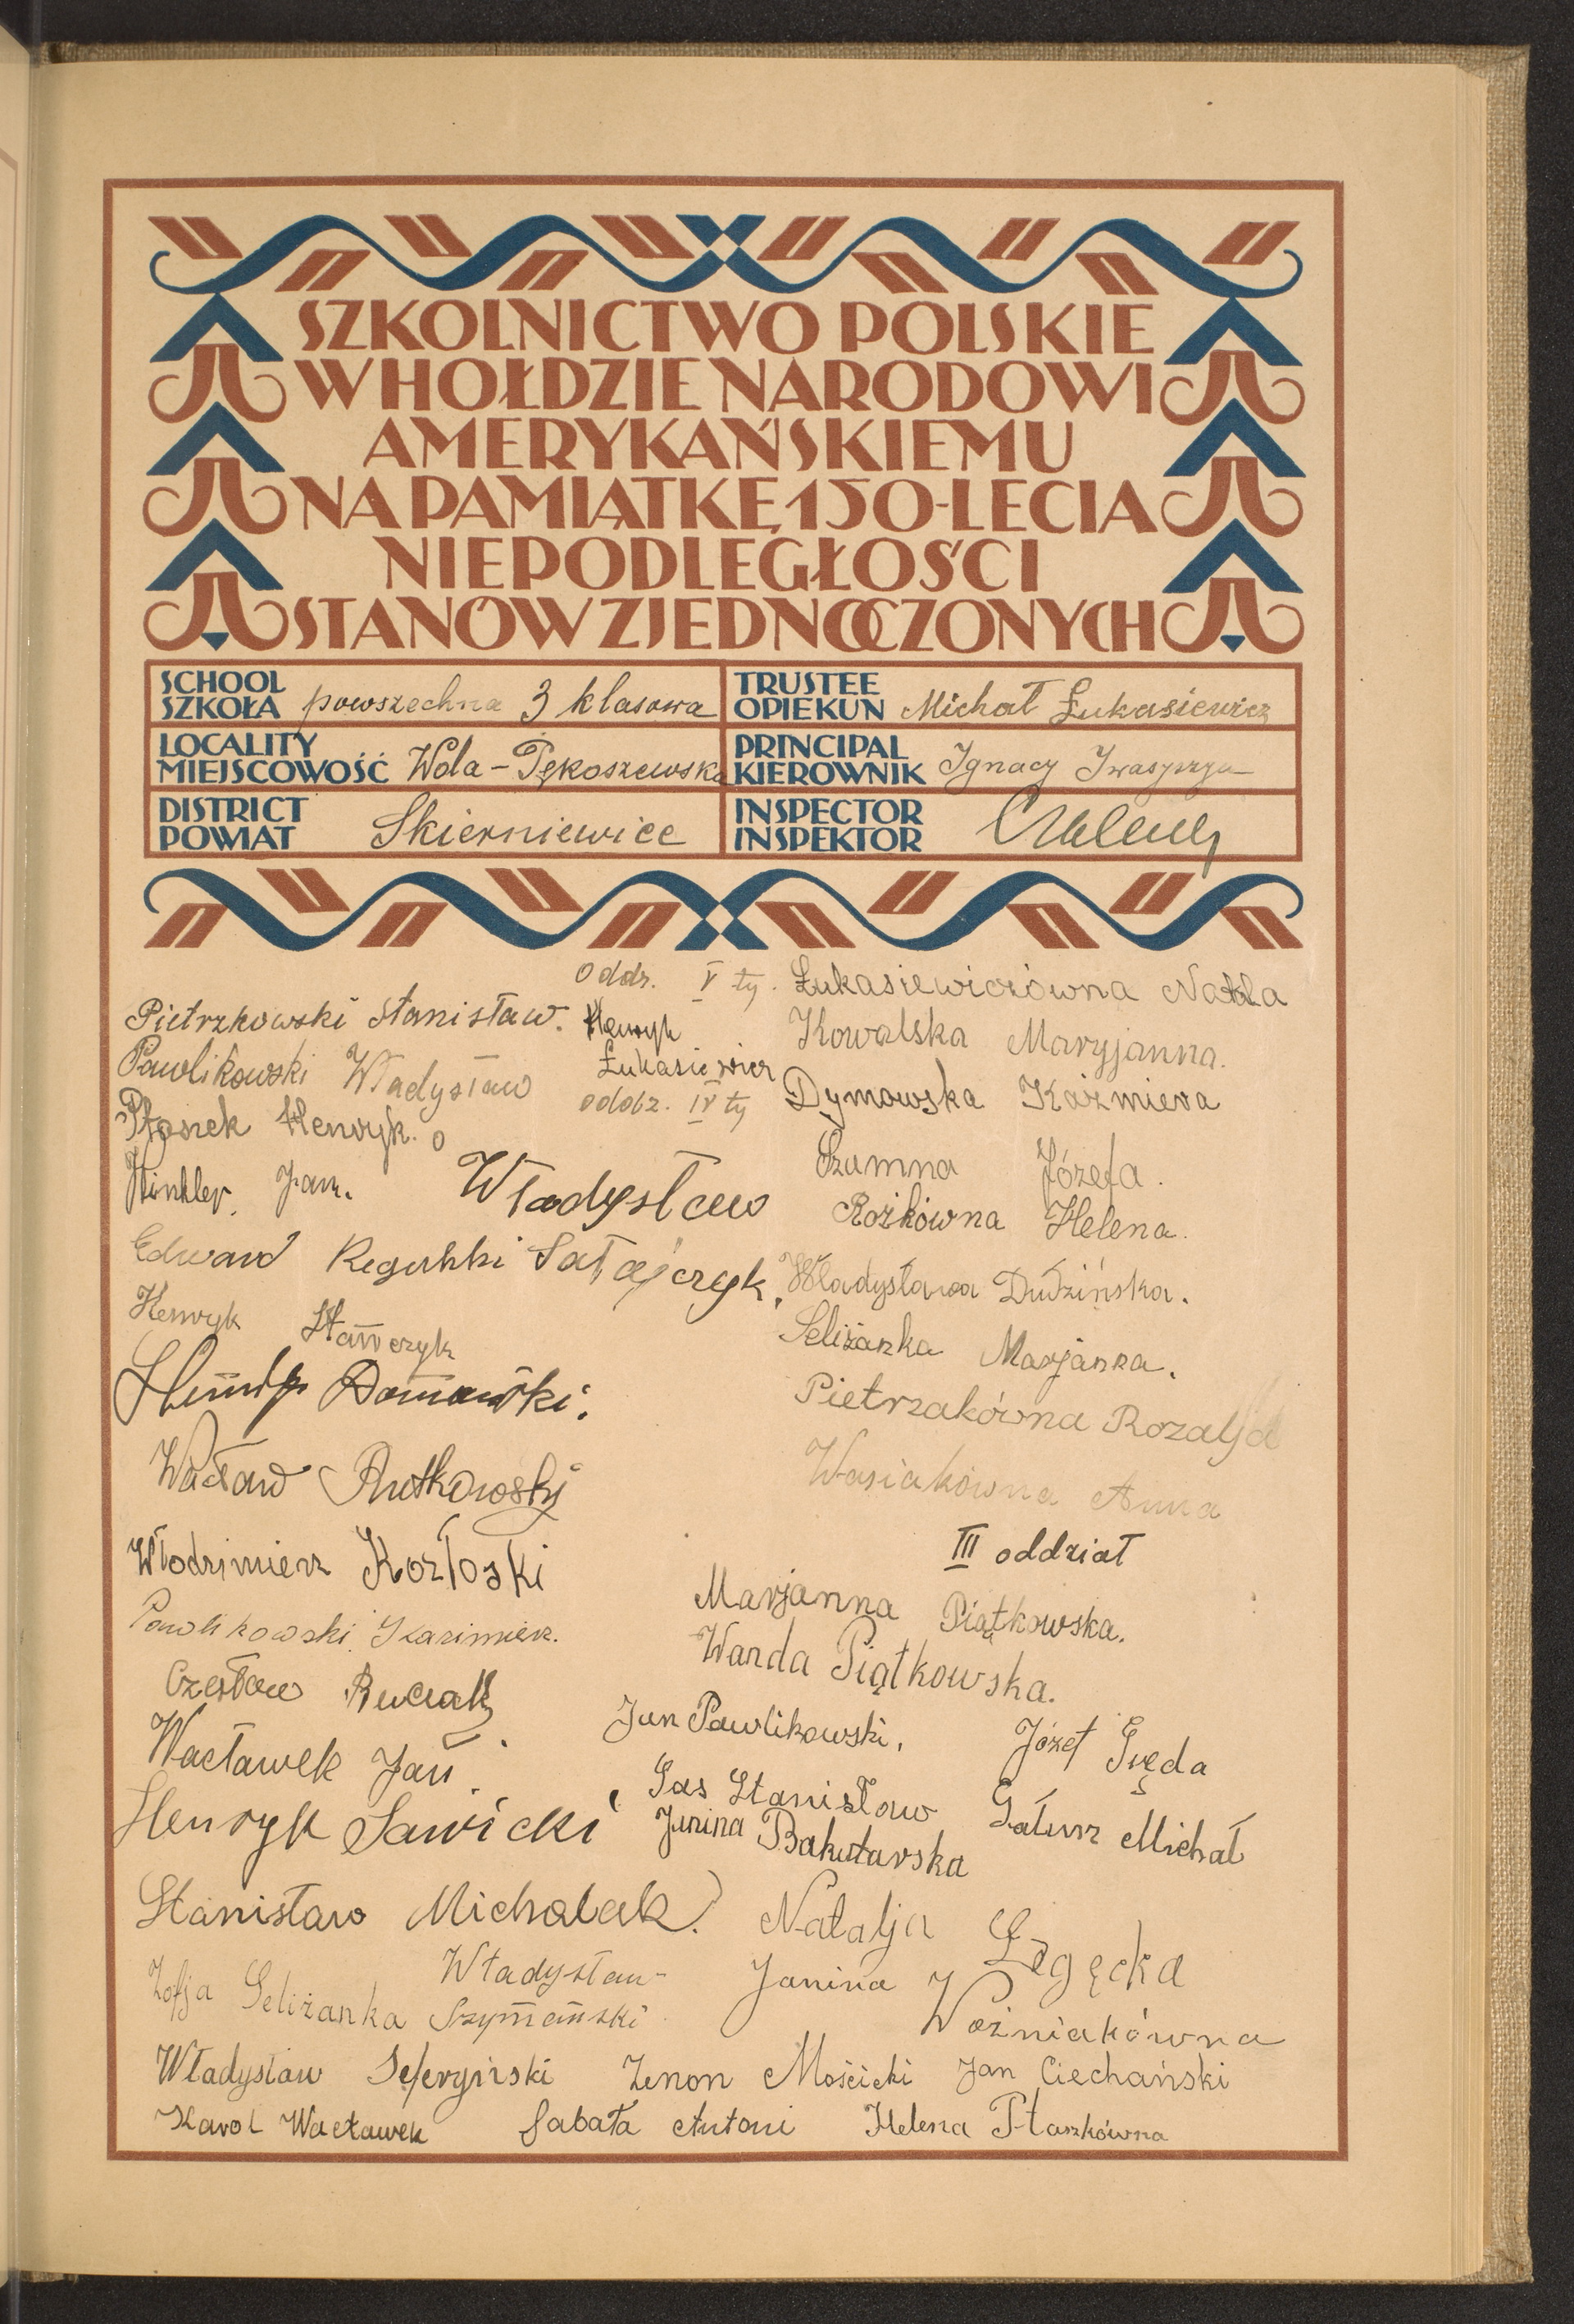 SZKOLNICTWO POLSKIE
W HOŁDZIE NARODOWI
AMERYKAŃSKIEMU
NA PAMIĄTKĘ 150-LECIA
NIEPODLEGŁOŚCI
STANÓW ZJEDNOCZONYCH
SCHOOL
SZKOŁA powszechna 3 klasowa
TRUSTEE
OPIEKUN Michał Łukasiewicz
LOCALITY
MIEJSCOWOŚĆ Wola-Pękoszewska
PRINCIPAL
KIEROWNIK Ignacy
DISTRICT
POWIAT Skierniewice
INSPECTOR
INSPEKTOR
Oddz. V ty.
Pietrzkowski Stanisław.
Henryk
Łukasiewicz
Pawlikowski Władysław
oddz. IV ty
Płosiek Henryk.
Winkler Jan.
Władysław
Satajczyk.
Edward
Henryk Stawczyk
Henryk Domański.
Wacław Rutkowski
Włodzimierz Kozłoski
Pawlikowski Kazimierz.
Czesław Ruciak
Wacławek Jan.
Henryk Sawicki
Stanisław Michalak.
Zofja Seliżanka
Władysław
Szymański
Łukasiewiczówna
Kowalska Maryjanna.
Dymowska Kaźmiera
Szumna Józefa.
Rożkówna Helena.
Władysława Dudzińska.
Seliżanka Marjanna.
Pietrzakówna Rozalja
Wasiakówna Anna
III oddział
Marjanna Piątkowska.
Wanda Piątkowska.
Jan Pawlikowski.
Józef Gręda
Gas Stanisław
Gałusz Michał
Janina Bakutarska
Natalja Łęgęcka
Janina Woźniakówna
Władysław Seferyński Zenon Mościcki Jan Ciechański
Karol Wacławek Sabała Antoni Helena Ptaszkówna